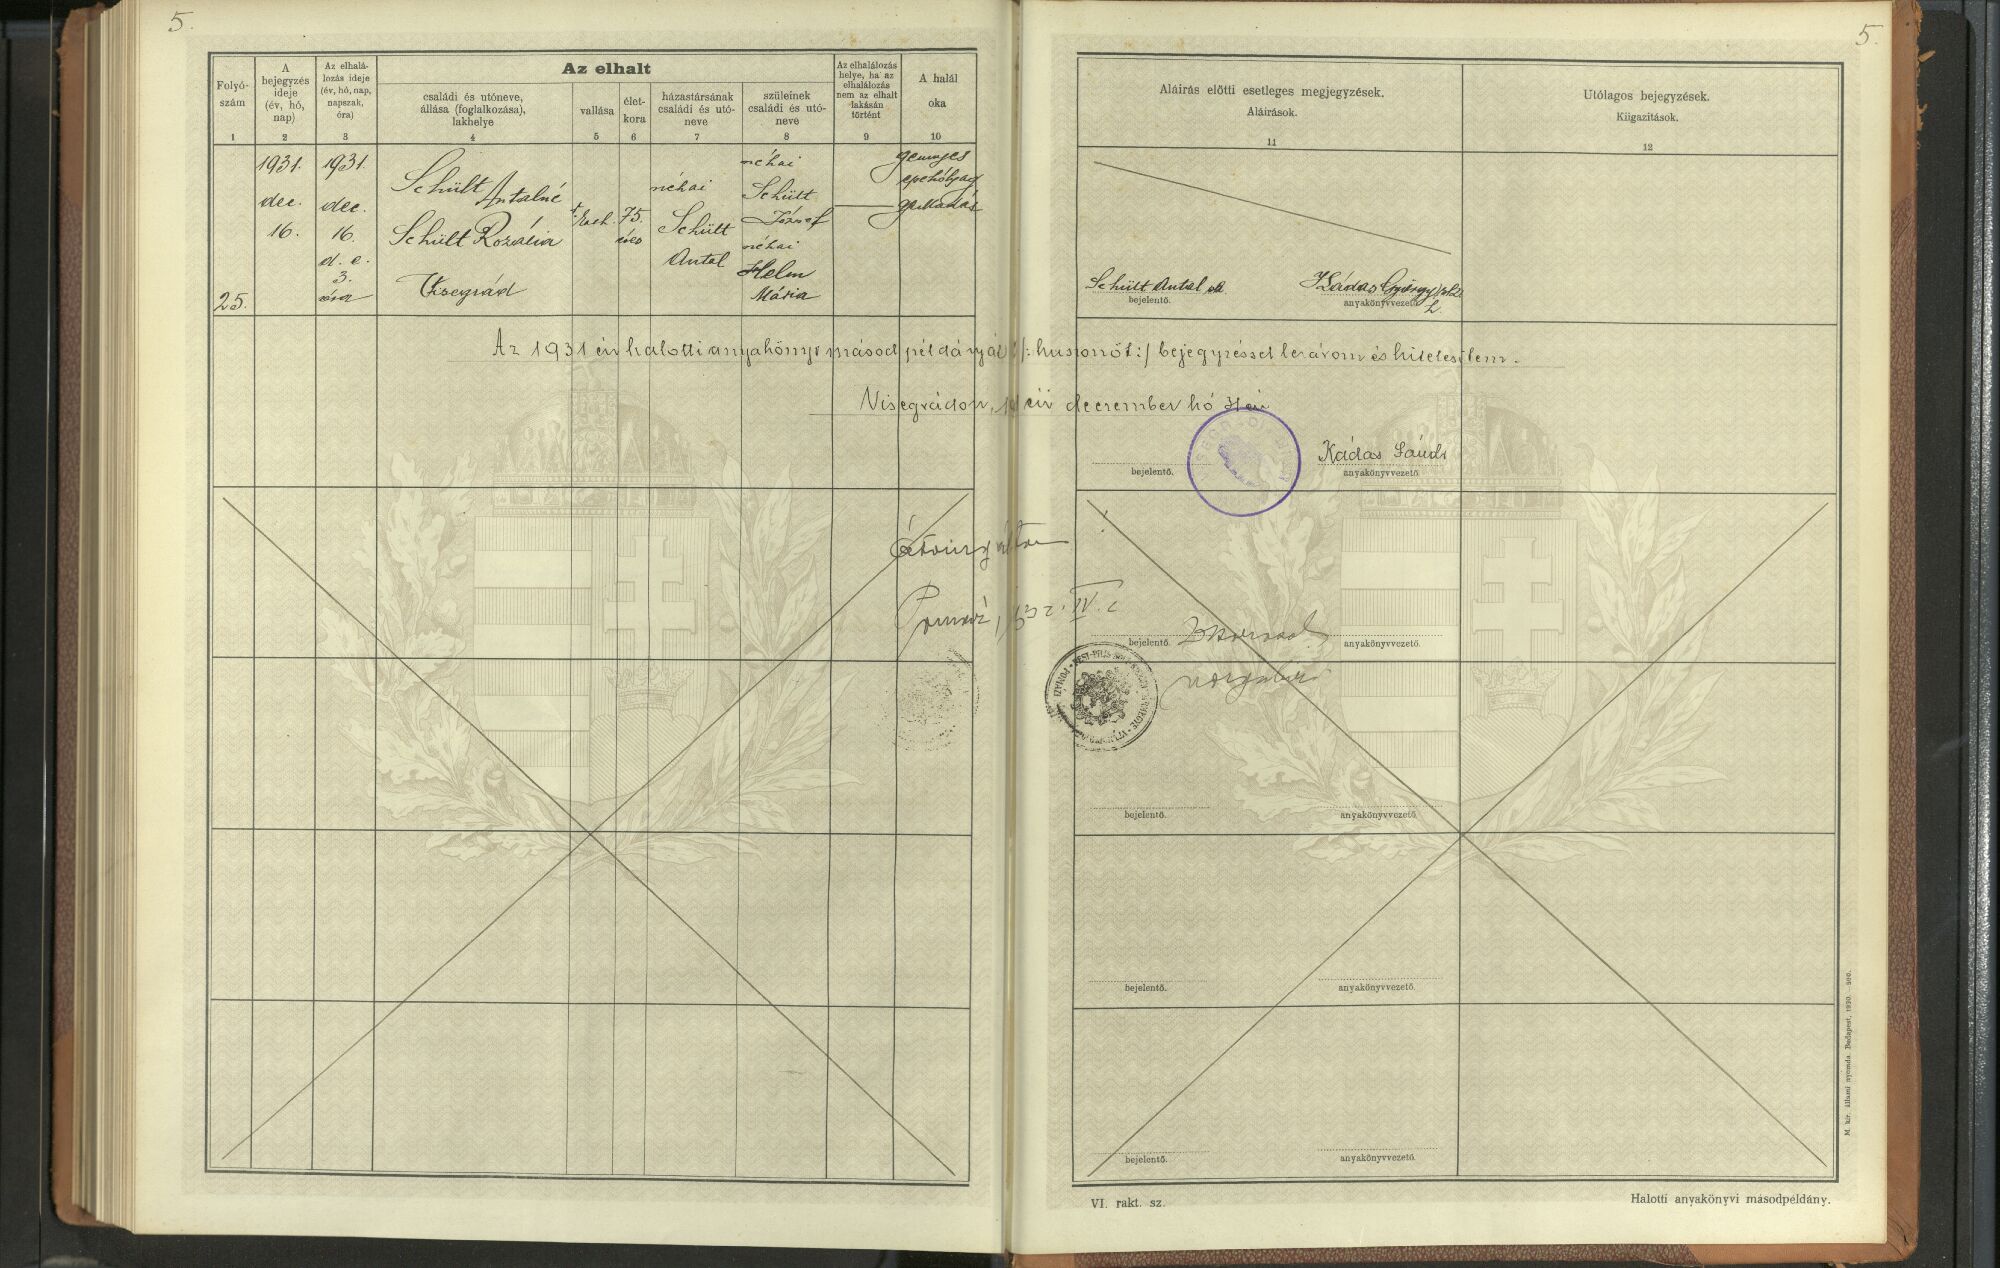 5.
Folyó-
szám
1
A
bejegyzés
ideje
(év, hó,
nap)
2
Az elhalá-
lozás ideje
(év, hó, nap,
napszak,
óra)
3
Az elhalt
családi és utóneve,
állása (foglalkozása),
lakhelye
4
vallása
5
élet-
kora
6
házastársának
családi és utó-
neve
7
szüleinek
családi és utó-
neve
8
Az elhalálozás
helye, ha az
elhalálozás
nem az elhalt
lakásán
történt
9
A halál
oka
10
25.
1931.
dec.
16.
1931.
dec.
16.
d. e.
3.
óra
Schült
Antalné
Schült Rozália
Visegrád
r. kath.
75.
éves
néhai
Schült
Antal
néhai
Schült
József
néhai
Helm
Mária
gennyes
epehólyag
gyulladás
5.
Aláírás előtti esetleges megjegyzések.
Aláírások.
11
Utólagos bejegyzések.
Kiigazítások.
12
Schült Antal
bejelentő.
Kádas György
anyakönyvvezető
Az 1931 évi halotti anyakönyv másod példányát /: huszonöt :/ bejegyzéssel lezárom és hitelesítem.
Visegrádon, évi december hó 31 én
bejelentő.
Kádas
anyakönyvvezető.
Pomáz, 1932. IV.
bejelentő.
anyakönyvvezető.
bejelentő.
anyakönyvvezető.
bejelentő.
anyakönyvvezető.
bejelentő.
anyakönyvvezető.
VI. rakt. sz.
Halotti anyakönyvi másodpéldány.
M. kir. állami nyomda. Budapest, 1930.